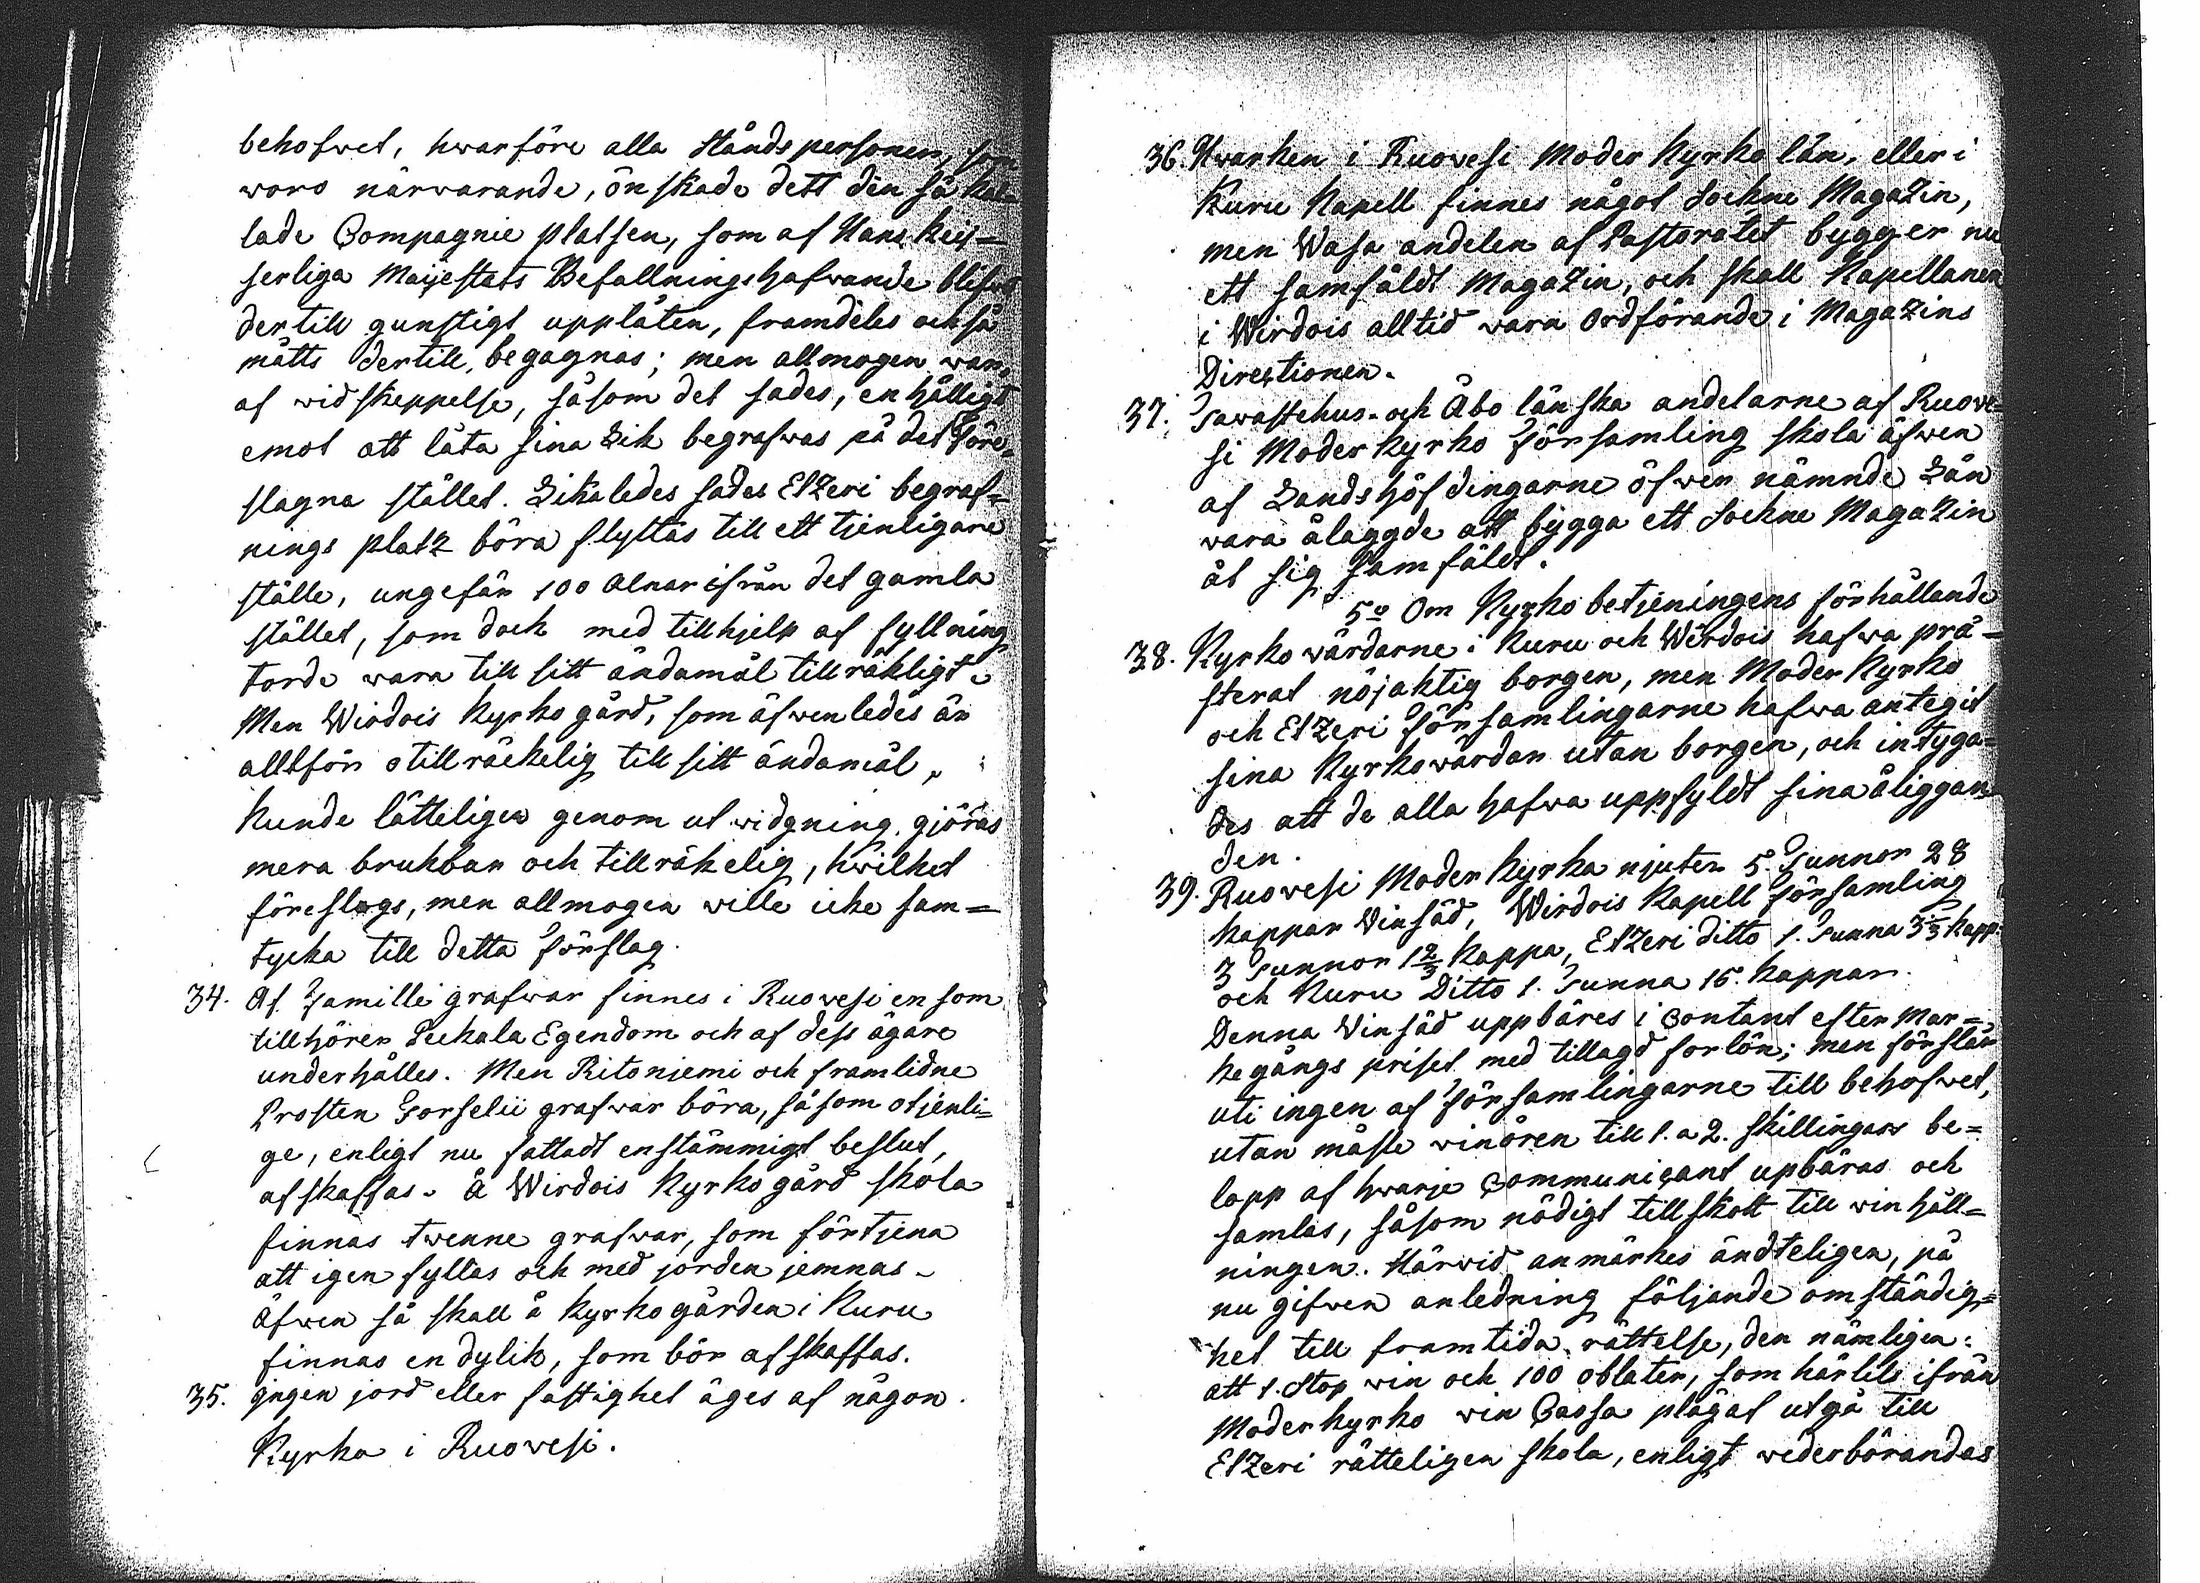 behofwet, hwarföre alla Ståndspersoner, som
woro närwarande, önskade dett den så kal-
lade Compagnie platsen, som af Hans Kej=
serliga Maijestäts Befallningshafwande blifwit
dertill gunstigt upplåten, framdeles också
måtts dertill begagnas; men allmogen war,
af widskeppelse, såsom det sades, enhälligt
emot att låta sina Lik begrafwas på det före=
slagna stället. Likaledes sades Etzeri begraf=
nings platz böra flyttas till ett tjenligare
ställe, ungefär 100 alnar ifrån det gamla
stället, som dock med tillhjelp af fyllning
torde vara till sitt ändamål tillräkligt.
Men Wirdois Kyrkogård, som äfwenledes är
alltför otillräckelig till sitt ändamål,
Kunde lätteligen genom utwidgning gjöras
mera brukbar och tillräkelig, hwilket
föreslogs, men allmogen wille icke sam=
tycka till detta förslag.
34. Af Famille grafwar finnes i Ruowesi en som
tillhörer Pekkala Egendom och af dess ägare
underhålles. Men Ritoniemi och framlidne
Prosten Forselii grafwar böra, såsom otjenli=
ge, enligt nu fattadt enstämmigt beslut,
afskaffas. Å Wirdois Kyrkogård skola
finnas twenne grafwar, som förtjena
att igenfyllas och med jorden jemnas.
Äfwen så skall å Kyrkogården i Kuru
finnas en dylik, som bör afskaffas.
35. Ingen jord eller fastighet äges af någon
Kyrka i Ruowesi.
36. Hwarken i Ruovesi Moder Kyrko län, eller i
Kuru Kapell finnes något Sockne Magazin,
men Wasa andelen af Pastoratet bygger nu
ett samfäldt Magazin, och skall Kapellanen
i Wirdois alltid vara Ordförande i Magazins
Directionen.
37. Tawastehus- och Åbo länska andelarne af Ruowe=
si Moderkyrko Församling skola äfwen
af Landshöfdingarne öfwer nämnde Län
vara ålaggde att bygga ett Sockne Magazin
åt sig samfäldt.
5o Om Kyrkobetjeningens förhållande
38. Kyrkowärdarne i Kuru och Wirdois hafwa prä=
sterat nöjaktig borgen, men Moder Kyrko
och Etzeri Församlingarne hafwa antagit
sina Kyrkowärdar utan borgen, och intyga=
des att de alla hafwa uppfyldt sina åliggan=
den.
39. Ruovesi Moder Kyrka njuter 5. Tunnor 28
kappar Vinsäd, Wirdois Kapell Församling
3 Tunnor 1 2/3 Kappa, Etzeri ditto 1. Tunna 3 1/3 kapp:
och Kuru Ditto 1. Tunna 16. kappar.
Denna Vinsäd uppbäres i Contant efter Mar=
kegångs priset med tillagd forlön; men förslår
uti ingen af Församlingarne till behofwet,
utan måste winören till 1. a 2. skillingars be=
lopp af hwarje Communicant upbäras och
samlas, såsom nödigt tillskott till winhåll=
ningen. Härwid anmärkes ändteligen, på
nu gifwen anledning följande omständig=
het till framtida rättelse, den nämligen:
att 1. Stop win och 100 oblater, som härtils ifrån
Moderkyrko win Cassa plägat utgå till
Etzeri rätteligen skola, enligt wederbörandes